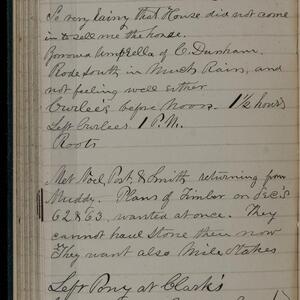 So very rainy that House did not come
in to sell me the horse.
Borrowed Umbrella of C. Dunham.
Rode South in Much Rain, and
not feeling well either
Curlee's before Noon. 1½ hours
Left Curlees 1 P.M.
Roots
Met Noel, Post, & Smith returning from
Muddy. Plans of on Sec's
62 & 63, wanted at once. They
cannot haul Stone there now
They want also Mile Stakes
Left Pony at Clark's